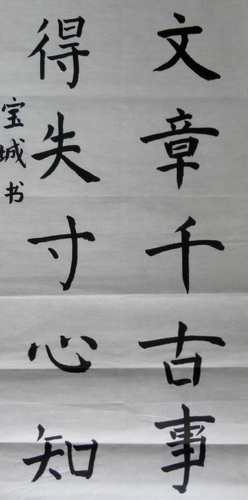 文章千古事
得失寸心知
宝城书